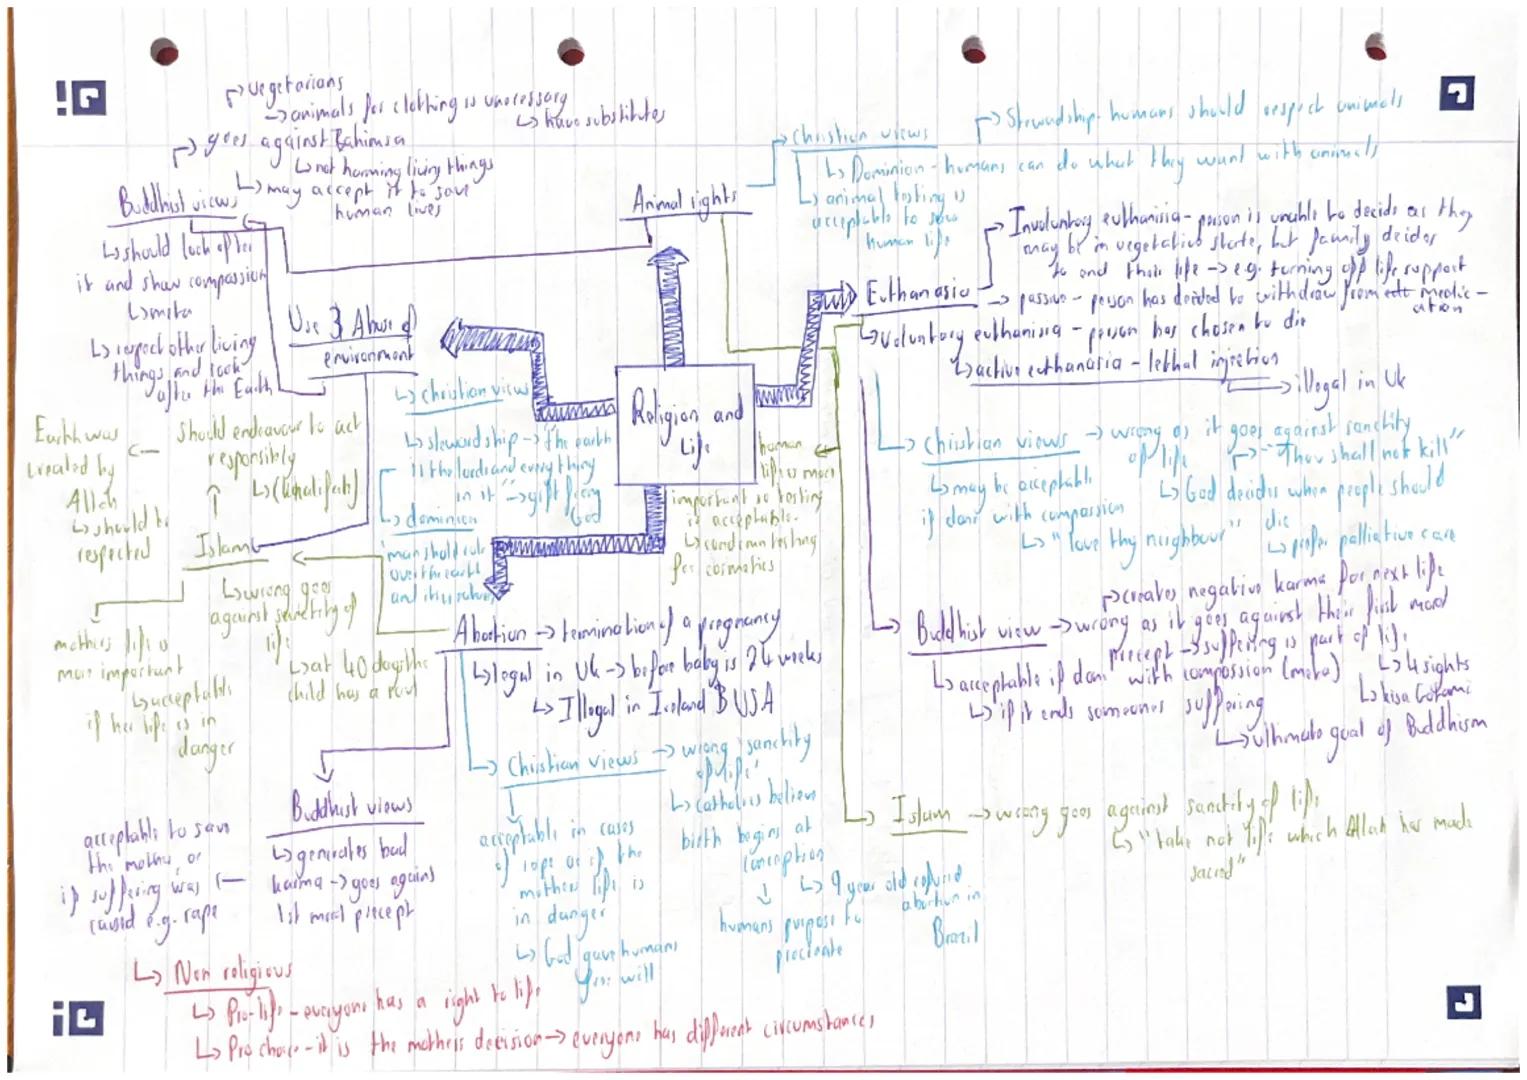 vegetarians
→ animals for clothing is unecessary
↳ have substitutes
goes against Bahimsa
↳ not harming living things
↳ may accept it to save
human lives
Buddhist views
↳ should look after
it and show compassion
↳ metta
↳ respect other living
things and look
after the Earth
Animal rights
Christian views
Stewardship - humans should respect animals
↳ Dominion - humans can do what they want with animals
↳ animal testing is
acceptable to save
human life
Use & Abuse of
environment
↳ Christian views
↳ stewardship → "the earth
is the lords and everything
in it" → gift from
God
↳ dominion
'man should rule
over the earth
Religion and
Life
human
life is more
important so testing
is acceptable.
↳ condemn testing
for cosmetics
Euthanasia
Involuntary euthanisia - person is unable to decide as they
may be in vegetative state, but family decides
to end their life → e.g. turning off life support
→ passive - person has decided to withdraw from medic-
ation
↳ Voluntary euthanisia - person has chosen to die
↳ active euthanasia - lethal injection
→ illegal in Uk
↳ Christian views → wrong as it goes against sanctity
of life
"Thou shall not kill"
↳ may be acceptable
if done with compassion
↳ "love thy neighbour"
↳ God decides when people should
die
↳ prefer palliative care
Buddhist view → wrong as it goes against their first moral
precept → suffering is part of life
creates negative karma for next life
↳ 4 sights
↳ kisa Gotami
↳ acceptable if done with compassion (metta)
↳ if it ends someones suffering
↳ ultimate goal of Buddhism
→ Islam → wrong goes against sanctity of life
↳ "take not life which Allah has made
sacred"
Earth was
created by
Allah
↳ should be
respected
should endeavour to act
responsibly
↳ (khalifah)
Islam
↳ wrong goes
against sanctity of
life
↳ at 40 days the
child has a soul
mothers life is
more important
↳ acceptable
if her life is in
danger
Abortion → termination of a pregnancy
↳ legal in Uk → before baby is 24 weeks
↳ Illegal in Ireland & USA
→ Christian views → wrong 'sanctity
of life'
↳ catholics believe
birth begins at
conception
↳ 9 year old refused
abortion in
Brazil
↓
humans purpose to
procreate
acceptable in cases
of rape or if the
mothers life is
in danger
↳ God gave humans
free will
Buddhist views
↳ generates bad
karma → goes agains
1st moral precept
acceptable to save
the mother or
if suffering was
caused e.g. rape
↳ Non religious
↳ Pro-life - everyone has a right to life
↳ Pro choice - it is the mothers decision → everyone has different circumstances